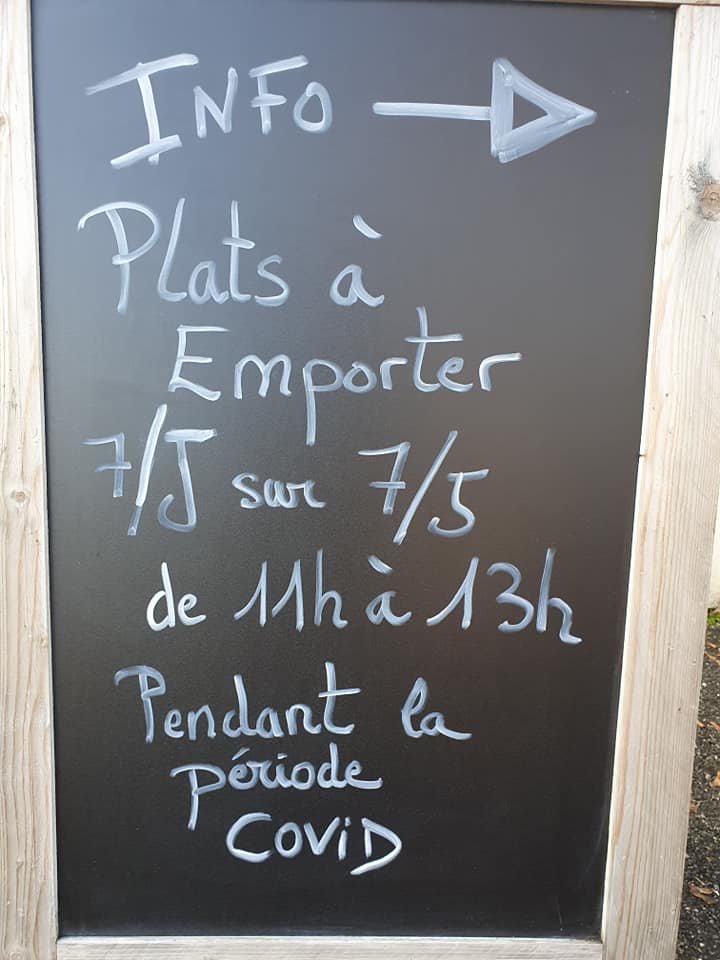 INFO
Plats à
Emporter
7/J sur 7/5
de 11h à 13h
Pendant la
période
COViD